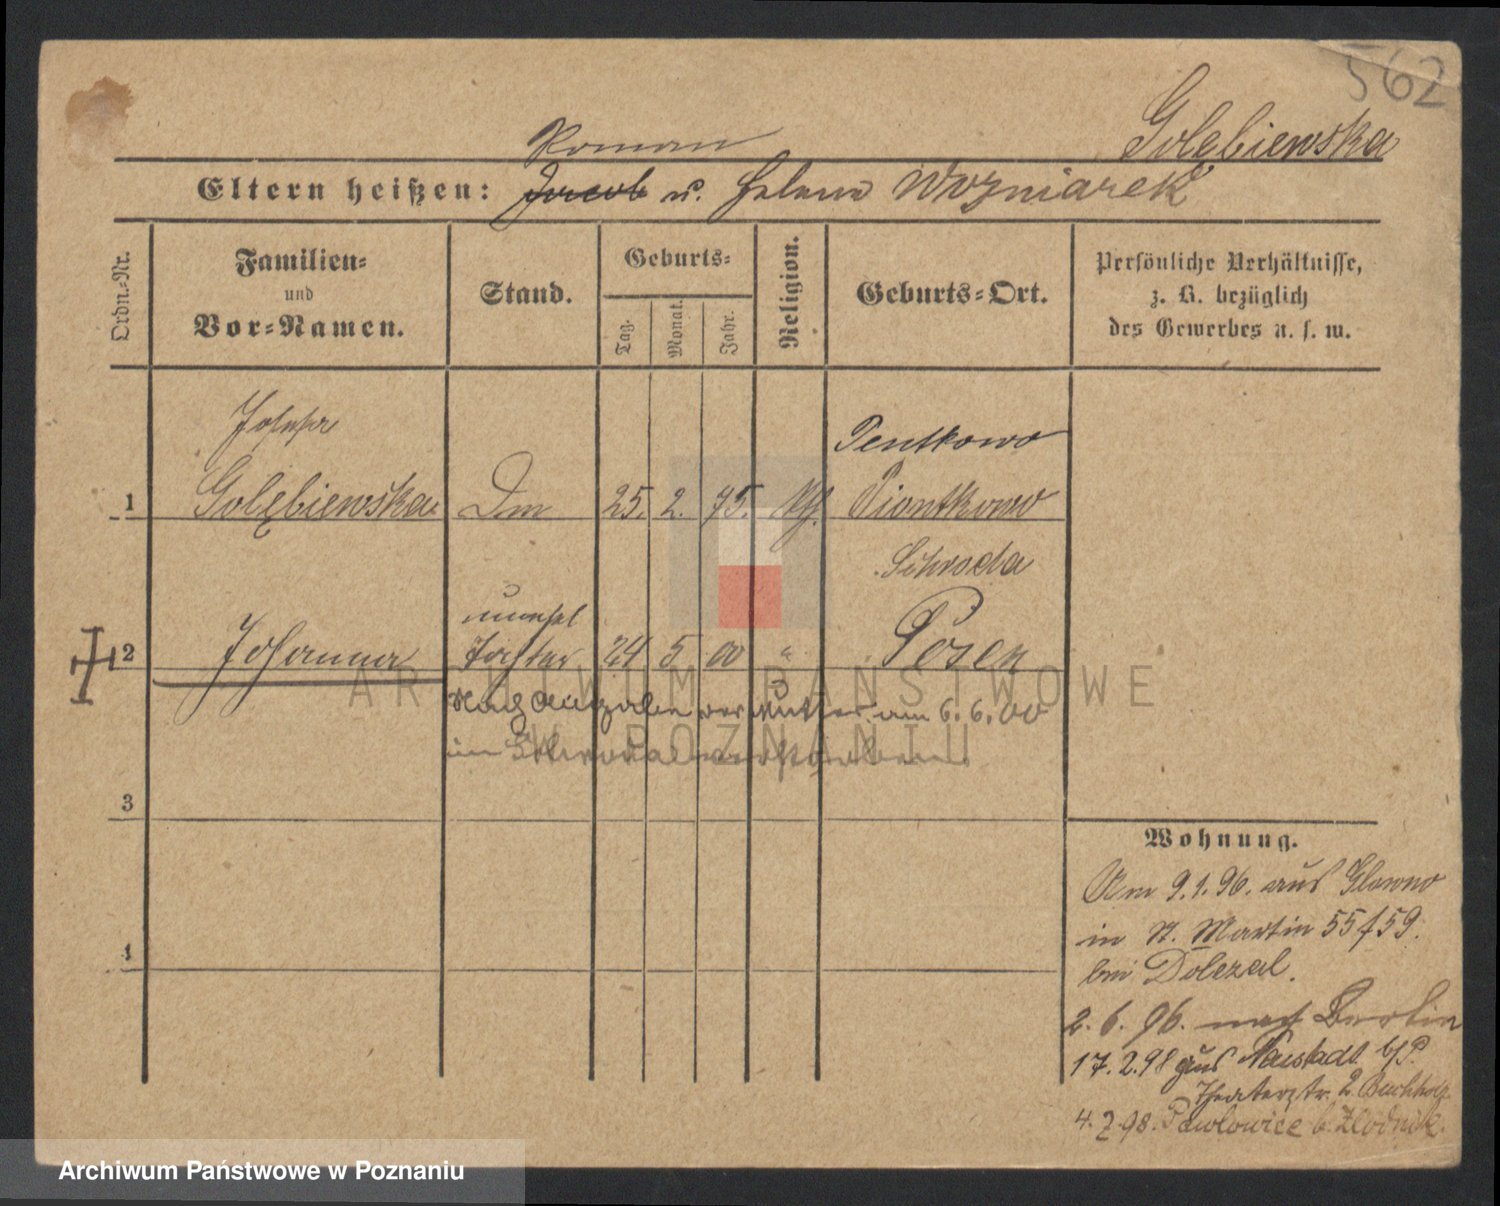 562
Golębiewska
Roman
Eltern heißen: Jacob u. Helene Wozniarek
Ordn.-Nr.
Familien-
und
Vor-Namen.
Stand.
Geburts-
Tag.
Monat.
Jahr.
Religion.
Geburts-Ort.
Persönliche Verhältnisse,
z. B. bezüglich
des Gewerbes u. s. w.
Josefa
Pentkowo
1 Golębiewska Dm 25. 2. 75. Kth. Piontkowo
Schroda
unehel
2 Johanna Tochter 24 5 00 " Posen
Nach Angabe der Mutter am 6.6.00
in Schroda verstorben
3
4
Wohnung.
Am 9.1.96. aus Glowno
in St. Martin 55/59.
bei Dolezal.
2. 6. 96. nach Berlin
17.2.98 aus Neustadt b/P.
Theaterstr. 2 Buchholz
4.2.98. Pawlowice b. Zlodnik.
ARCHIWUM PAŃSTWOWE
W POZNANIU
Archiwum Państwowe w Poznaniu